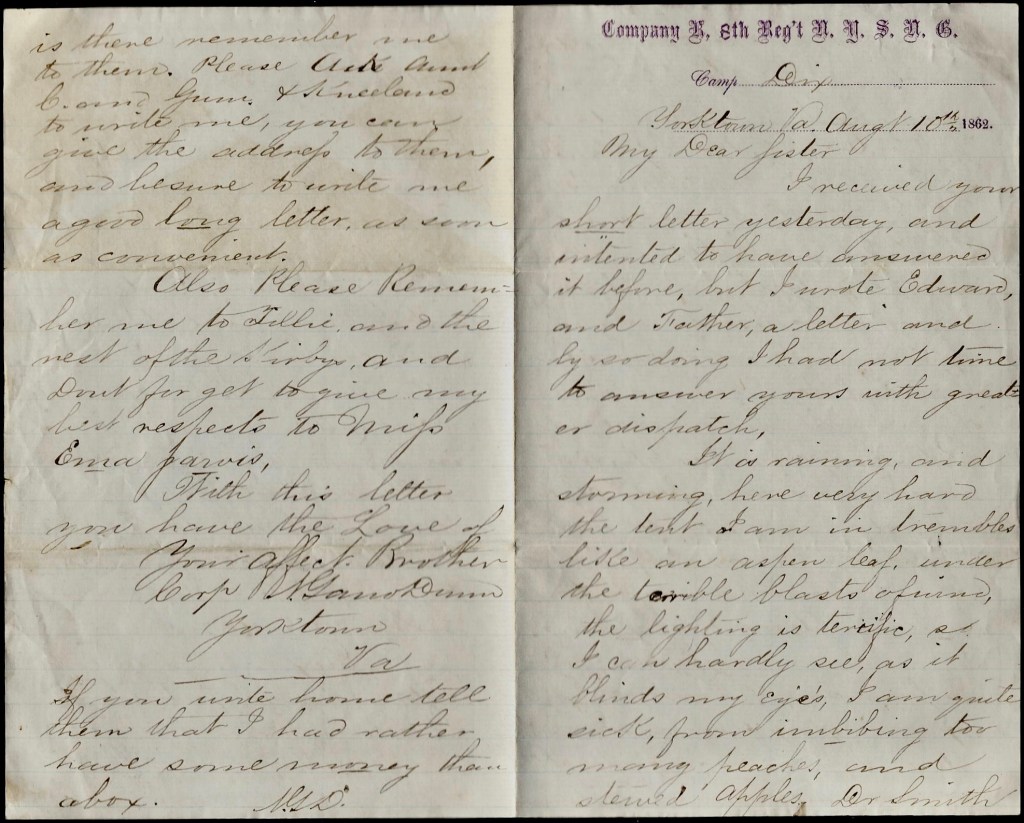 Company K, 8th Reg't N. Y. S. N. G.
Camp Dix
Yorktown Va. Augt 10th, 1862.
My Dear Sister
I received your
short letter yesterday, and
intented to have answered
it before, but I wrote Edward,
and Father, a letter and
by so doing I had not time
to answer yours with great=
er dispatch,
It is raining, and
storming, here very hard
the tent I am in trembles
like an aspen leaf, under
the terrible blasts of wind,
the lighting is terific, so
I can hardly see, as it
blinds my eye's, I am quite
sick, from imbibing too
many peaches, and
stewed apples, Dr Smith
is there remember me
to them. Please Ask Aunt
C. and Gum. & Kneeland
to write me, you can
give the address to them,
and besure to write me
a good long letter, as soon
as convenient.
Also Please Remem=
ber me to Tillie, and the
rest of the Kirbys, and
Dont forget to give my
best respects to Miss
Ema jarvis,
With this letter
you have the Love of
Your affect. Brother
Corp N. Gano Dunn
Yorktown
Va
If you write home tell
them that I had rather
have some money than
a box. N.G.D.